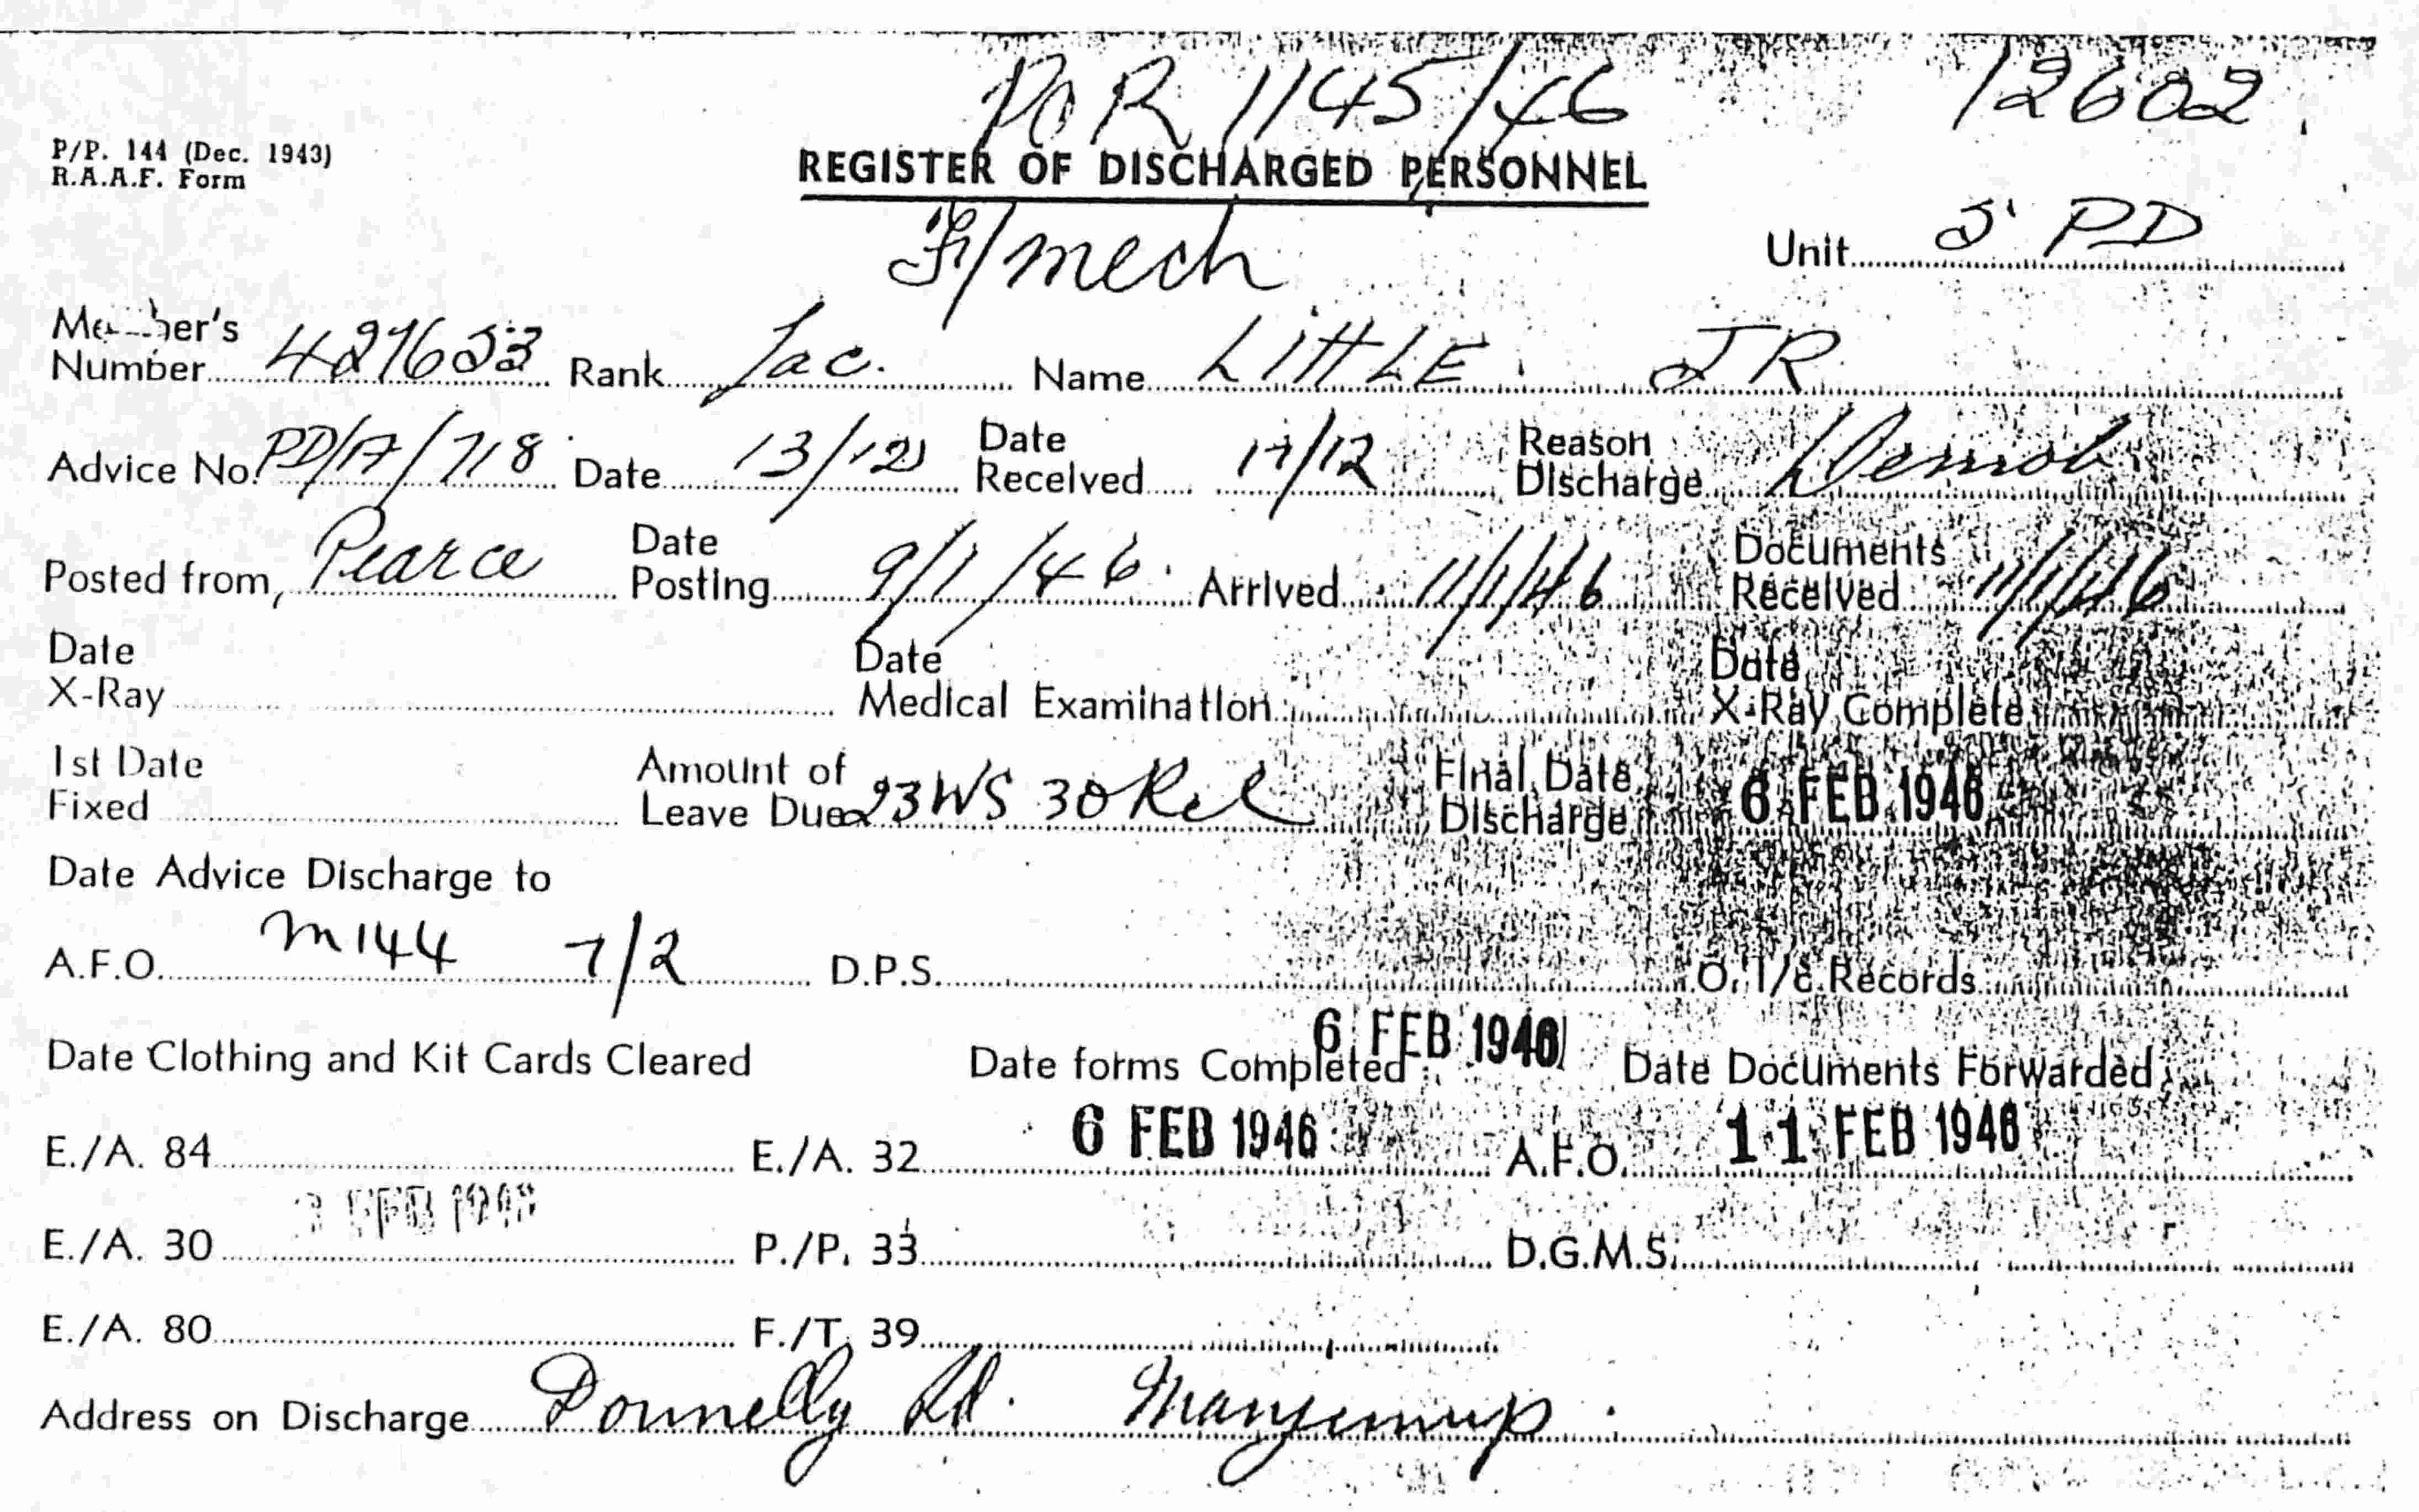 PO R 1145/46 12602
P/P. 144 (Dec. 1943)
R.A.A.F. Form
REGISTER OF DISCHARGED PERSONNEL
F/mech
Unit 5 PD
Member's
Number 427653 Rank Lac. Name LITTLE JR
Advice No. PD/A/718 Date 13/12 Date Received 17/12 Reason Discharge Demob
Posted from Pearce Date Posting 9/1/46. Arrived 11/1/46 Documents Received 11/1/46
Date X-Ray Date Medical Examination Date X-Ray Complete
1st Date Fixed Amount of Leave Due 23 WS 30 Rel Final Date Discharge 6 FEB 1946
Date Advice Discharge to
A.F.O. M144 7/2 D.P.S. O. I/c. Records
Date Clothing and Kit Cards Cleared Date forms Completed 6 FEB 1946 Date Documents Forwarded
E./A. 84 E./A. 32 6 FEB 1946 A.F.O. 11 FEB 1946
E./A. 30 FEB P./P. 33 D.G.M.S.
E./A. 80 F./T. 39
Address on Discharge Donnelly Rd. Manjimup.